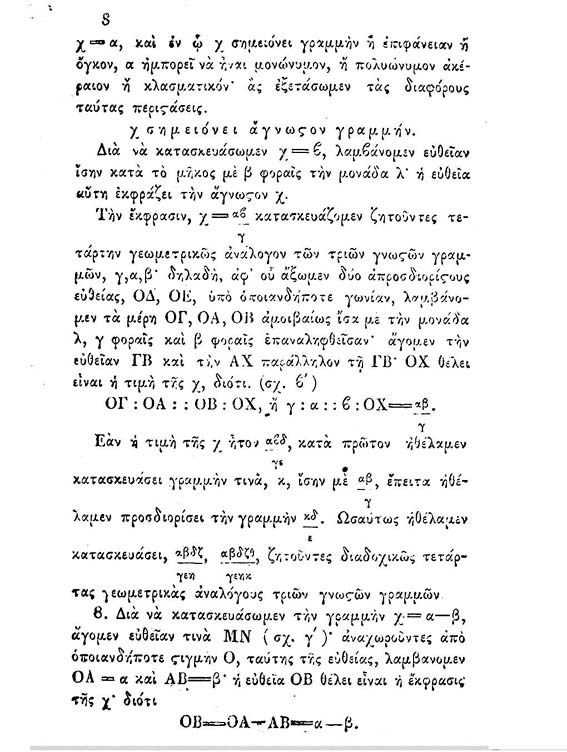 8
χ=α, καὶ ἐν ᾧ χ σημειόνει γραμμὴν ἢ ἐπιφάνειαν ἢ
ὄγκον, α ἠμπορεῖ νὰ ἦναι μονώνυμον, ἢ πολυώνυμον ἀκέ-
ραιον ἢ κλασματικόν· ἂς ἐξετάσωμεν τὰς διαφόρους
ταύτας περιϛάσεις.
χ σημειόνει ἄγνωϛον γραμμήν.
Διὰ νὰ κατασκευάσωμεν χ=ϐ, λαμϐάνομεν εὐθεῖαν
ἴσην κατὰ τὸ μῆκος μὲ β φοραῖς τὴν μονάδα λ· ἡ εὐθεῖα
αὕτη ἐκφράζει τὴν ἄγνωϛον χ.
Τὴν ἔκφρασιν, χ=αϐ/γ κατασκευάζομεν ζητοῦντες τε-
τάρτην γεωμετρικῶς ἀνάλογον τῶν τριῶν γνωϛῶν γραμ-
μῶν, γ,α,β· δηλαδὴ, ἀφ' οὗ ἄξωμεν δύο ἀπροσδιορίϛους
εὐθείας, ΟΔ, ΟΕ, ὑπὸ ὁποιανδήποτε γωνίαν, λαμβάνο-
μεν τὰ μέρη ΟΓ, ΟΑ, ΟΒ ἀμοιβαίως ἴσα μὲ τὴν μονάδα
λ, γ φοραῖς καὶ β φοραῖς ἐπαναληφθεῖσαν· ἄγομεν τὴν
εὐθεῖαν ΓΒ καὶ τὴν ΑΧ παράλληλον τῇ ΓΒ· ΟΧ θέλει
εἶναι ἡ τιμὴ τῆς χ, διότι. (σχ. ϐ')
ΟΓ : ΟΑ : : ΟΒ : ΟΧ, ἢ γ : α : : ϐ : ΟΧ=αβ/γ.
Εὰν ἡ τιμὴ τῆς χ ἦτον αϐδ/γε, κατὰ πρῶτον ἠθέλαμεν
κατασκευάσει γραμμὴν τινὰ, κ, ἴσην μὲ αβ/γ, ἔπειτα ἠθέ-
λαμεν προσδιορίσει τὴν γραμμὴν κδ/ε. Ωσαύτως ἠθέλαμεν
κατασκευάσει, αβδζ/γεη, αβδζθ/γεηκ, ζητοῦντες διαδοχικῶς τετάρ-
τας γεωμετρικὰς ἀναλόγους τριῶν γνωϛῶν γραμμῶν
6. Διὰ νὰ κατασκευάσωμεν τὴν γραμμὴν χ=α—β,
ἄγομεν εὐθεῖαν τινὰ ΜΝ (σχ. γ')· ἀναχωροῦντες ἀπὸ
ὁποιανδήποτε ϛιγμὴν Ο, ταύτης τῆς εὐθείας, λαμβανομεν
ΟΑ = α καὶ ΑΒ=β· ἡ εὐθεῖα ΟΒ θέλει εἶναι ἡ ἔκφρασις
τῆς χ· διότι
ΟΒ=ΟΑ—ΑΒ=α—β.